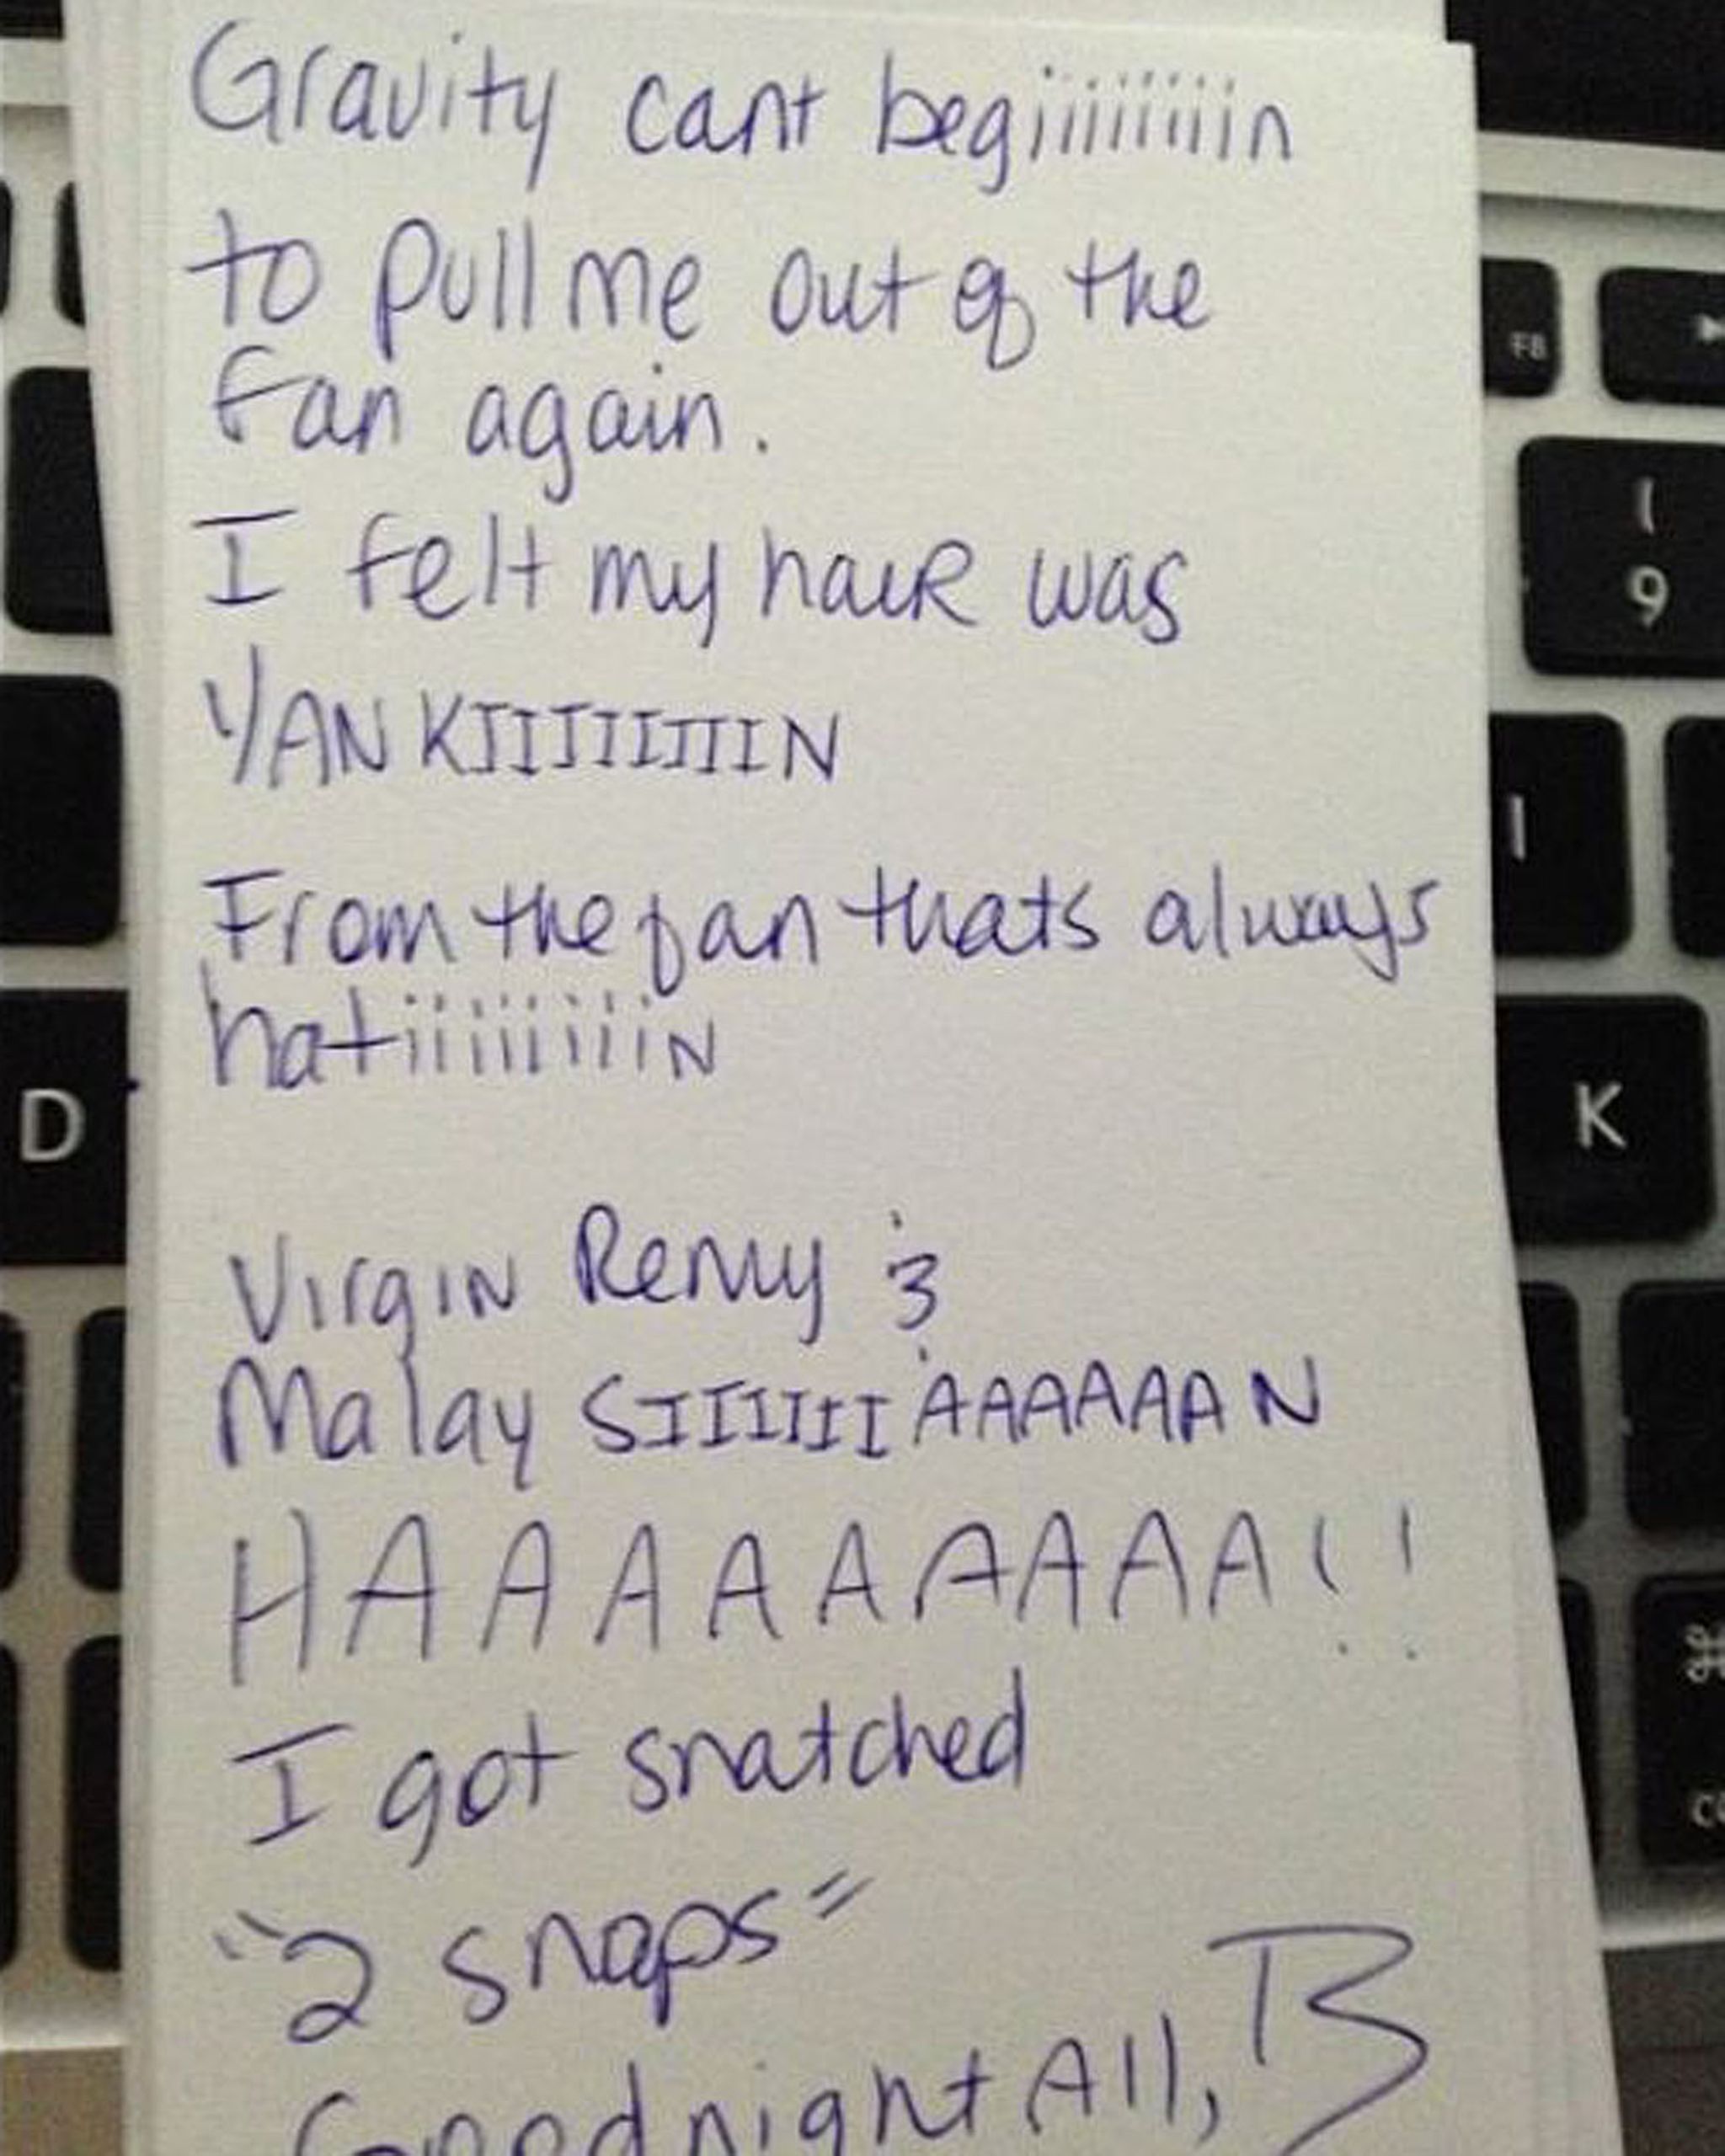 Gravity cant begiiiiiiiin
to pull me out of the
fan again.
I felt my haiR was
YANKIIIIIIIIIN
From the fan thats always
hatiiiiiiiiiN
VirgIN Remy &
Malay SIIIIIIIAAAAAAAN
HAAAAAAAAA!!
I got snatched
"2 snaps"
Goodnight All, B
F8
(
9
I
D
K
⌘